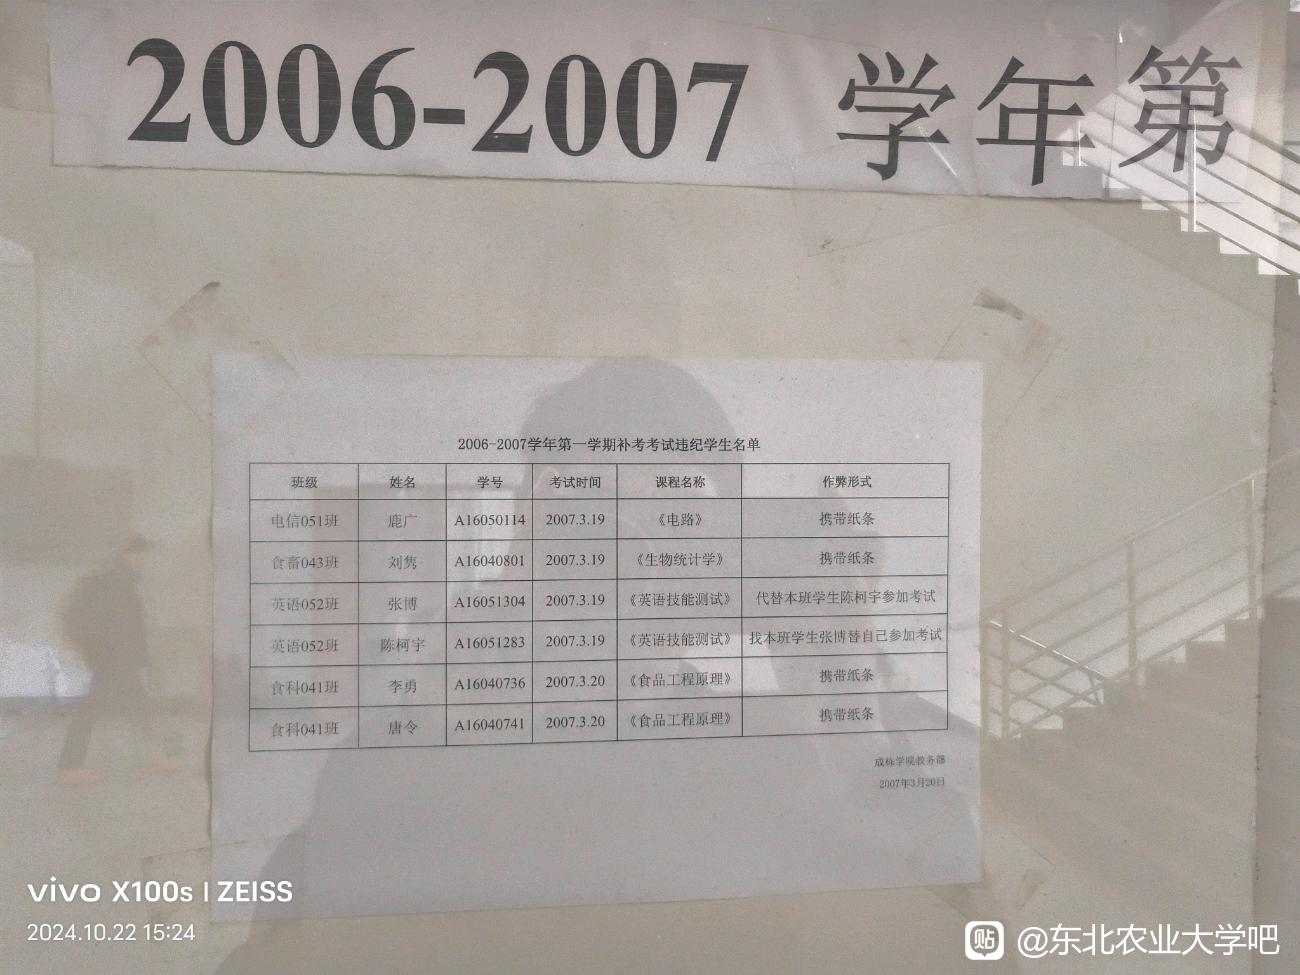 2006-2007 学年第
2006-2007学年第一学期补考考试违纪学生名单
班级 姓名 学号 考试时间 课程名称 作弊形式
电信051班 鹿广 A16050114 2007.3.19 《电路》 携带纸条
食畜043班 刘隽 A16040801 2007.3.19 《生物统计学》 携带纸条
英语052班 张博 A16051304 2007.3.19 《英语技能测试》 代替本班学生陈柯宇参加考试
英语052班 陈柯宇 A16051283 2007.3.19 《英语技能测试》 找本班学生张博替自己参加考试
食科041班 李勇 A16040736 2007.3.20 《食品工程原理》 携带纸条
食科041班 唐令 A16040741 2007.3.20 《食品工程原理》 携带纸条
成栋学院教务部
2007年3月20日
vivo X100s | ZEISS
2024.10.22 15:24
贴 @东北农业大学吧